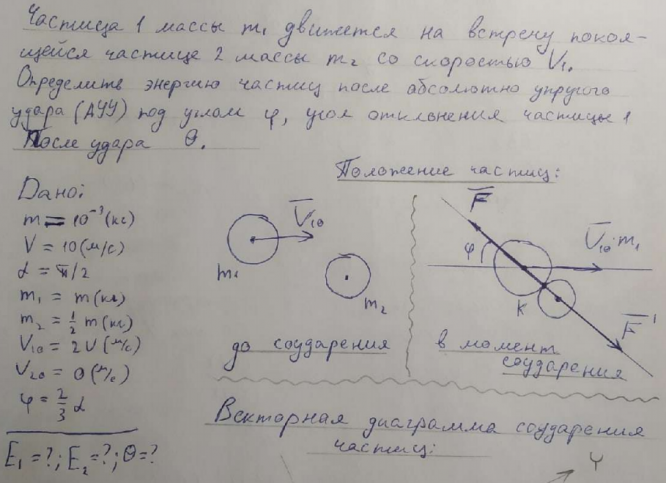 Частица 1 массы m₁ движется на встречу покоя-
щейся частице 2 массы m₂ со скоростью V₁.
Определите энергию частиц после абсолютно упругого
удара (АУУ) под углом φ, угол отклонения частицы 1
После удара θ.
Положение частиц:
Дано:
m = 10⁻³ (кг)
V = 10 (м/с)
α = π/2
m₁ = m (кг)
m₂ = ½ m (кг)
V₁₀ = 2V (м/с)
V₂₀ = 0 (м/с)
φ = 2/3 α
E₁ = ?; E₂ = ?; θ = ?
V̅₁₀
m₁
m₂
до соударения
F̅
φ
V̅₁₀·m₁
K
F̅'
в момент
соударения
Векторная диаграмма соударения
частиц:
Y